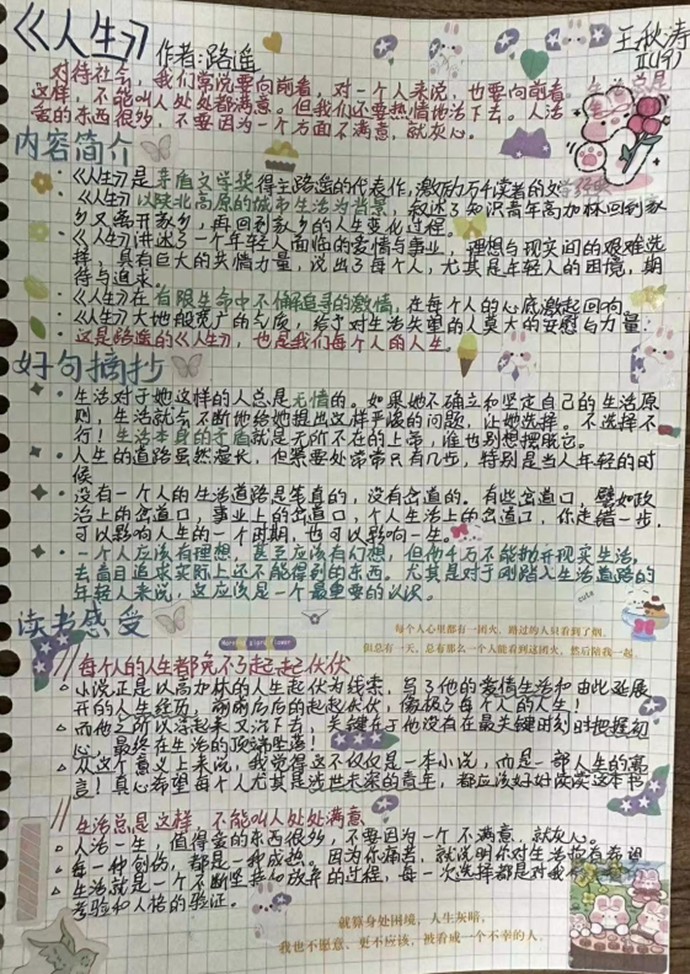 《人生》
作者:路遥
王秋涛
II(19)
对待社会,我们常说要向前看,对一个人来说,也要向前看。生活总是
这样,不能叫人处处都满意。但我们还要热情地活下去。人活
爱的东西很多,不要因为一个方面不满意,就灰心。
内容简介
《人生》是茅盾文学奖得主路遥的代表作,激励万千读者的文学经典
《人生》以陕北高原的城市生活为背景,叙述了知识青年高加林回到家
乡又离开家乡,再回到家乡的人生变化过程。
《人生》讲述了一个年轻人面临的爱情与事业,理想与现实间的艰难选
择,具有巨大的共情力量,说出了每个人,尤其是年轻人的困境,期
待与追求。
《人生》在有限生命中不懈追寻的激情,在每个人的心底激起回响。
《人生》大地般宽广的气质,给予对生活失重的人莫大的安慰与力量.
这是路遥的《人生》,也是我们每个人的人生。
好句摘抄
生活对于她这样的人总是无情的。如果她不确立和坚定自己的生活原
则,生活就会不断地给她提出这样严峻的问题,让她选择。不选择不
行!生活本身的矛盾就是无所不在的上帝,谁也别想摆脱它。
人生的道路虽然漫长,但紧要处常常只有几步,特别是当人年轻的时
候
没有一个人的生活道路是笔直的,没有岔道的。有些岔道口,譬如政
治上的岔道口,事业上的岔道口,个人生活上的岔道口,你走错一步,
可以影响人生的一个时期,也可以影响一生。
一个人应该有理想,甚至应该有幻想,但他千万不能抛开现实生活,
去盲目追求实际上还不能得到的东西。尤其是对于刚踏入生活道路的
年轻人来说,这应该是一个最重要的认识。
cute
读书感受
Morning glory flower
每个人心里都有一团火,路过的人只看到了烟。
但总有一天,总有那么一个人能看到这团火,然后陪我一起。
每个人的人生都免不了起起伏伏
小说正是以高加林的人生起伏为线索,写了他的爱情生活和由此延展
开的人生经历,前前后后的起起伏伏,像极了每个人的人生!
而他之所以浮起来又沉下去,关键在于他没有在最关键时刻时把握初
心,最终在生活的顶端坠落!
从这个意义上来说,我觉得这不仅仅是一本小说,而是一部人生的寓
言!真心希望每个人尤其是涉世未深的青年,都应该好好读读这本书
生活总是这样 不能叫人处处满意
人活一生,值得爱的东西很多,不要因为一个不满意,就灰心。
每一种创伤,都是一种成熟。因为你痛苦,就说明你对生活抱有希望
生活就是一个不断坚持和放弃的过程,每一次选择都是对我
考验和人格的验证。
就算身处困境,人生灰暗,
我也不愿意、更不应该,被看成一个不幸的人。